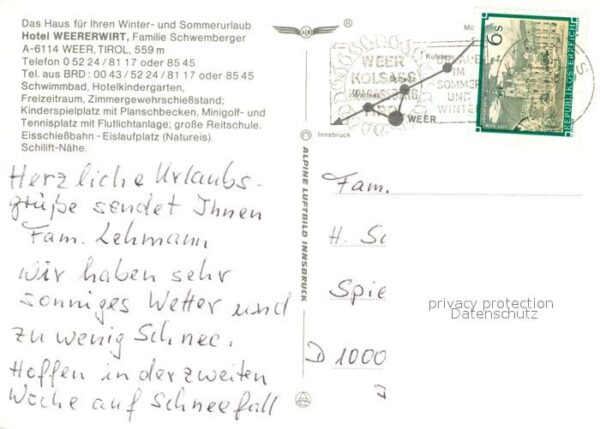 Das Haus für Ihren Winter- und Sommerurlaub
Hotel WEERERWIRT, Familie Schwemberger
A-6114 WEER, TIROL, 559 m
Telefon 0 52 24 / 81 17 oder 85 45
Tel. aus BRD : 00 43 / 52 24 / 81 17 oder 85 45
Schwimmbad, Hotelkindergarten,
Freizeitraum, Zimmergewehrschießstand;
Kinderspielplatz mit Planschbecken, Minigolf- und
Tennisplatz mit Flutlichtanlage; große Reitschule.
Eisschießbahn - Eislaufplatz (Natureis).
Schilift-Nähe.
Herzliche Urlaubs-
grüße sendet Ihnen
Fam. Lehmann
Wir haben sehr
sonniges Wetter und
zu wenig Schnee.
Hoffen in der zweiten
Woche auf Schneefall
ALPINE LUFTBILD INNSBRUCK
Kufstein
WEER
KOLSASS
IM
SOMMER
UND
WINTER
Innsbruck
WEER
6 S
REPUBLIK ÖSTERREICH
Fam.
H. Sc
Spie
D 1000
privacy protection
Datenschutz